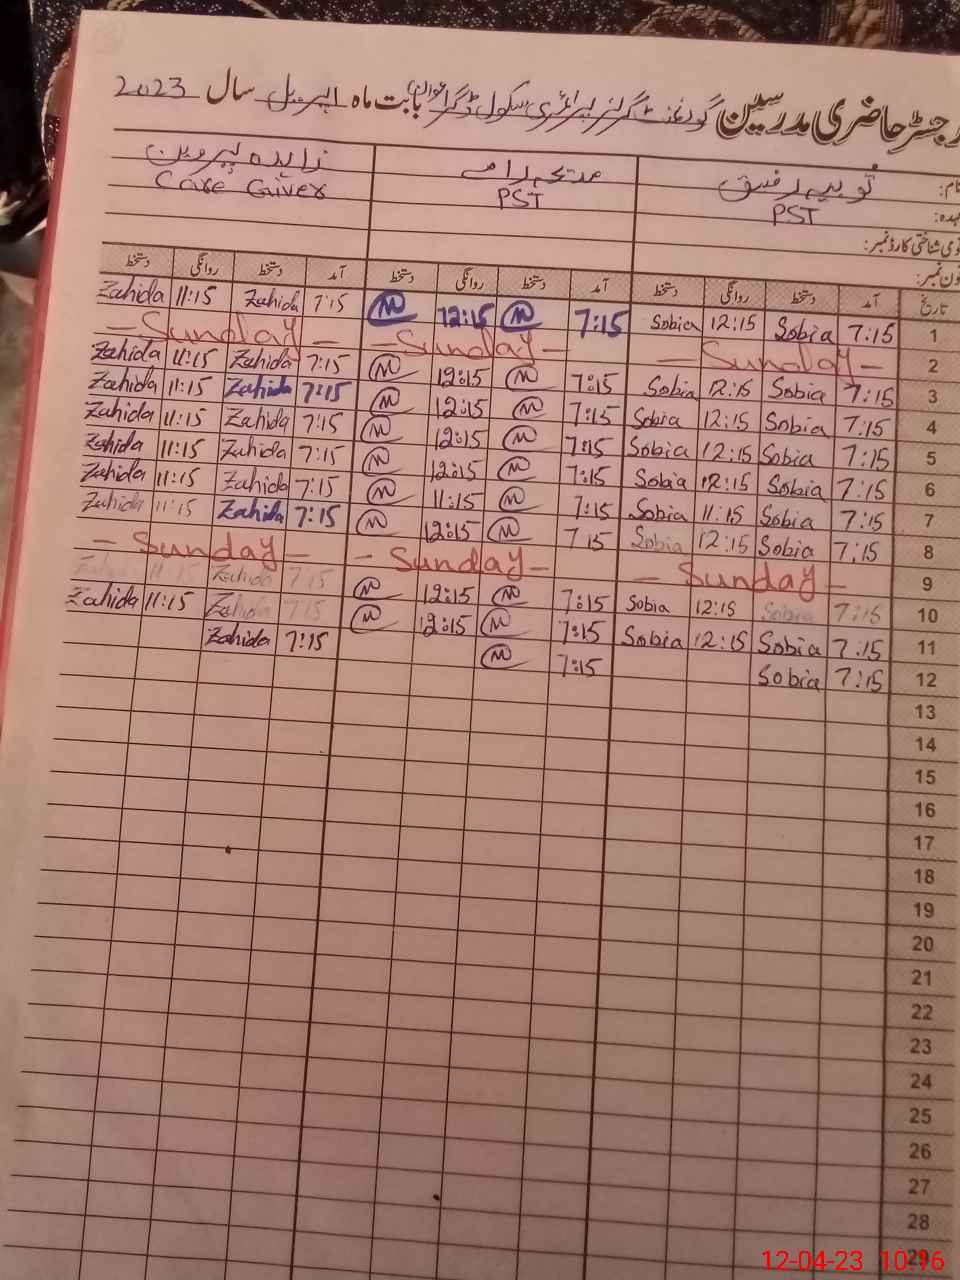 رجسٹر حاضری مدرسین گورنمنٹ گرلز پرائمری سکول ڈگرا بابت ماہ اپریل سال 2023
نام: ثوبیہ رفیق زاہدہ پروین
عہدہ: PST PST Care Giver
قومی شناختی کارڈ نمبر:
فون نمبر:
تاریخ آمد دستخط روانگی دستخط آمد دستخط روانگی دستخط آمد دستخط روانگی دستخط
1 7:15 Sobia 12:15 Sobia 7:15 12:15 7:15 Zahida 11:15 Zahida
2 - Sunday - - Sunday - - Sunday -
3 7:15 Sobia 12:15 Sobia 7:15 12:15 7:15 Zahida 11:15 Zahida
4 7:15 Sobia 12:15 Sobia 7:15 12:15 7:15 Zahida 11:15 Zahida
5 7:15 Sobia 12:15 Sobia 7:15 12:15 7:15 Zahida 11:15 Zahida
6 7:15 Sobia 12:15 Sobia 7:15 12:15 7:15 Zahida 11:15 Zahida
7 7:15 Sobia 11:15 Sobia 7:15 11:15 7:15 Zahida 11:15 Zahida
8 7:15 Sobia 12:15 Sobia 7 15 12:15 7:15 Zahida 11:15 Zahida
9 - Sunday - - Sunday - - Sunday -
10 7:15 Sobia 12:15 Sobia 7:15 12:15 7:15 Zahida 11:15 Zahida
11 7:15 Sobia 12:15 Sobia 7:15 12:15 7:15 Zahida 11:15 Zahida
12 7:15 Sobia 7:15 7:15 Zahida
13
14
15
16
17
18
19
20
21
22
23
24
25
26
27
28
29
12-04-23 10:16